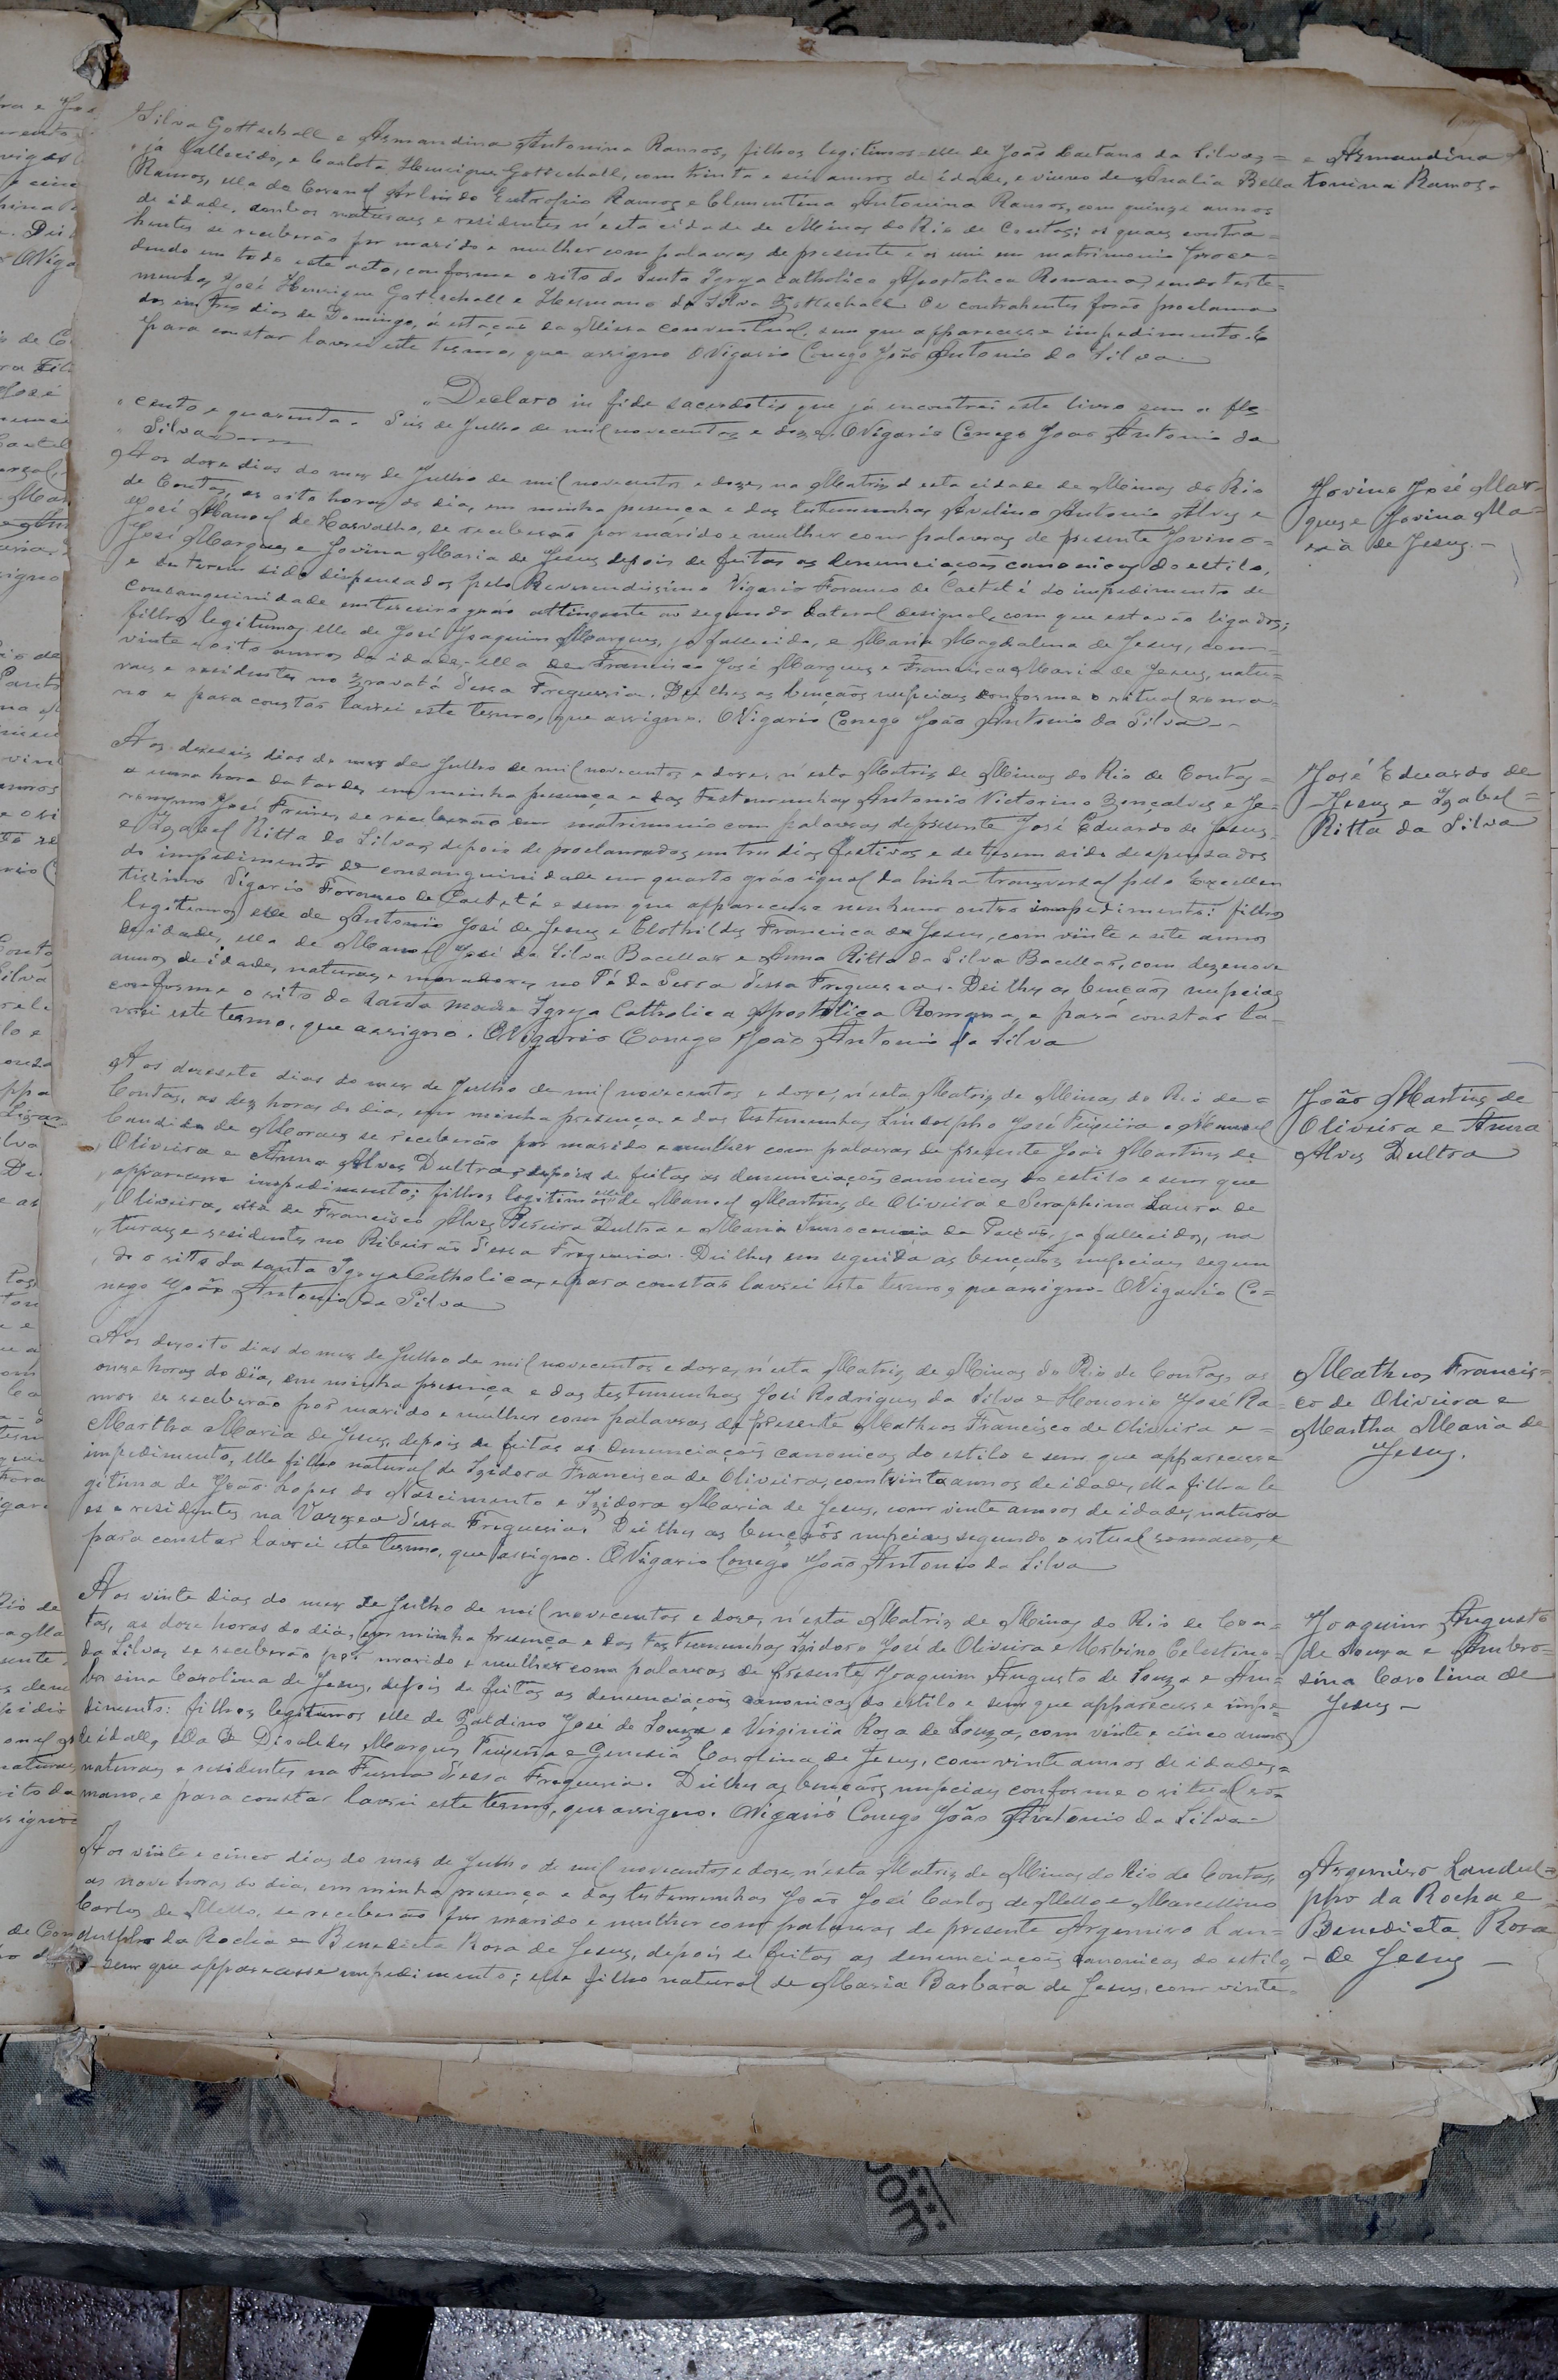 Silva Gottschall e Armandina Antonina Ramos, filhos legitimos = elle de João Caetano da Silva, =
já fallecido, e Carlota Henrique Gottschall, com trinta e seis annos de idade, e viuvo de Analia Bella
Ramos, ella de Coronel Arlindo Eutropio Ramos e Clementina Antonina Ramos, com quinze annos
de idade, ambos naturaes e residentes n'esta cidade de Minas do Rio de Contas; os quaes contra=
hentes se receberão por marido e mulher com palavras de presente e os uni em matrimonio proce=
dendo em todo este acto, conforme o rito da Santa Igreja Catholica Apostolica Romana, sendo teste=
munhas José Henrique Gottschall e Hermano da Silva Gottschall Os contrahentes forão proclama
dos em tres dias de Domingo, á estação da Missa conventual, sem que apparecesse impedimento. E
para constar lavrei este termo, que assigno O Vigario Conego João Antonio da Silva
e Armandina
tonina Ramos.
Declaro in fide sacerdotis que já encontrei este livro sem a fls
cento e quarenta. Seis de Julho de mil novecentos e doze. O Vigario Conego João Antonio da
Silva
Aos doze dias do mez de Julho de mil novecentos e doze, na Matriz d'esta cidade de Minas do Rio
de Contas, as oito horas do dia, em minha presença e das testemunhas Avelino Antonio Alves e
José Manoel de Carvalho, se receberão por marido e mulher com palavras de presente Jovino =
José Marques e Jovina Maria de Jesus depois de feitas as denunciações canonicas do estilo,
e de terem sido dispensados pelo Reverendissimo Vigario Foraneo de Caeteté do impedimento de
consanguinidade em terceiro grao attingente ao segundo lateral desigual, com que estavão ligados;
filhos legitimos elle de José Joaquim Marques, já fallecido, e Maria Magdalena de Jesus, com =
vinte e oito annos de idade, ella de Francisco José Marques e Francisca Maria de Jesus, natu=
raes e residentes no Gravatá dessa Freguesia. Dei lhes as bençãos nupciaes conforme o ritual roma=
no e para constar lavrei este termo, que assigno. O Vigario Conego João Antonio da Silva
Jovino José Mar-
ques e Jovina Ma=
ria de Jesus. -
Aos dezeseis dias do mez de Julho de mil novecentos e doze, n'esta Matriz de Minas do Rio de Contas =
a uma hora da tarde, em minha presença e das testemunhas Antonio Victorino Gonçalves e Je=
ronymo José Freire, se receberão em matrimonio com palavras de presente José Eduardo de Jesus
e Izabel Ritta da Silva, depois de proclamados em tres dias festivos e de terem sido despensados
do impedimento de consanguinidade em quarto gráo igual da linha transversal pelo Excellen
tissimo Vigario Foraneo de Caeteté e sem que apparecesse nenhum outro impedimento: filhos
legitimos elle de Antonio José de Jesus e Clothildes Francisca de Jesus, com vinte e sete annos
de idade, ella de Manoel José da Silva Bacellar e Anna Ritta da Silva Bacellar, com dezenove
annos de idade, naturaes e moradores no Pé da Serra dessa Freguesia. Dei lhes as bençãos nupciaes
conforme o rito da Santa Madre Igreja Catholica Apostolica Romana, e para constar la-
vrei este termo, que assigno. O Vigario Conego João Antonio da Silva
José Eduardo de
Jesus e Izabel =
Ritta da Silva
Aos dezesete dias do mez de Julho de mil novecentos e doze, n'esta Matriz de Minas do Rio de =
Contas, as dez horas do dia, em minha presença e das testemunhas Lindolpho José Teixeira e Manoel
Candido de Moraes se receberão por marido e mulher com palavras de presente João Martins de
Oliveira e Anna Alves Dultra, depois de feitas as denunciações canonicas do estilo e sem que
apparecesse impedimento; filhos legitimos elle de Manoel Martins de Oliveira e Seraphina Laura de
Oliveira, ella de Francisco Alves Pereira Dultra e Maria Innocencia da Paixão, já fallecidos, na
turaes e residentes no Ribeirão dessa Freguesia. Dei lhes em seguida as bençãos nupciaes segun
do o rito da santa Igreja Catholica, e para constar lavrei este termo, que assigno. O Vigario Co=
nego João Antonio da Silva
João Martins de
Oliveira e Anna
Alves Dultra
Aos dezoito dias do mez de Julho de mil novecentos e doze, n'esta Matriz de Minas do Rio de Contas, as
onze horas do dia, em minha presença e das testemunhas José Rodrigues da Silva e Honorio José Ra
mos se receberão por marido e mulher com palavras de presente Matheos Francisco de Oliveira e =
Martha Maria de Jesus, depois de feitas as denunciações canonicas do estilo e sem que apparecesse
impedimento, elle filho natural de Izidora Francisca de Oliveira, com trinta annos de idade, ella filha le
gitima de João Lopes do Nascimento e Izidora Maria de Jesus, com vinte annos de idade, natura
es e residentes na Varzea dessa Freguesia. Dei lhes as bençãos nupciaes segundo o ritual romano, e
para constar lavrei este termo, que assigno. O Vigario Conego João Antonio da Silva
Matheos Francis=
co de Oliveira e
Martha Maria de
Jesus.
Aos vinte dias do mez de Julho de mil novecentos e doze, n'esta Matriz de Minas do Rio de Con=
tas, as doze horas do dia, em minha presença e das testemunhas Izidoro José de Oliveira e Celestino
da Silva, se receberão por marido e mulher com palavras de presente Joaquim Augusto de Souza e Am=
brosina Carolina de Jesus, depois de feitas as denunciações canonicas do estilo e sem que apparecesse impe=
dimento: filhos legitimos elle de Galdino José de Souza e Virginia Rosa de Souza, com vinte e cinco annos
de idade, ella de Marques Teixeira e Genesia Carolina de Jesus, com vinte annos de idade =
naturaes e residentes na Furna dessa Freguesia. Dei lhes as bençãos nupciaes conforme o ritual ro=
mano, e para constar lavrei este termo, que assigno. O Vigario Conego João Antonio da Silva
Joaquim Augusto
de Souza e Ambro=
sina Carolina de
Jesus -
Aos vinte e cinco dias do mez de Julho de mil novecentos e doze, n'esta Matriz de Minas do Rio de Contas,
as nove horas do dia, em minha presença e das testemunhas João José Carlos de Mello e Marcellino
Carlos de Mello, se receberão por marido e mulher com palavras de presente Argemiro Lan=
dulpho da Rocha e Benedicta Rosa de Jesus, depois de feitas as denunciações canonicas do estilo,
e sem que apparecesse impedimento; elle filho natural de Maria Barbara de Jesus, com vinte
Argemiro Landul=
pho da Rocha e =
Benedicta Rosa
- de Jesus -